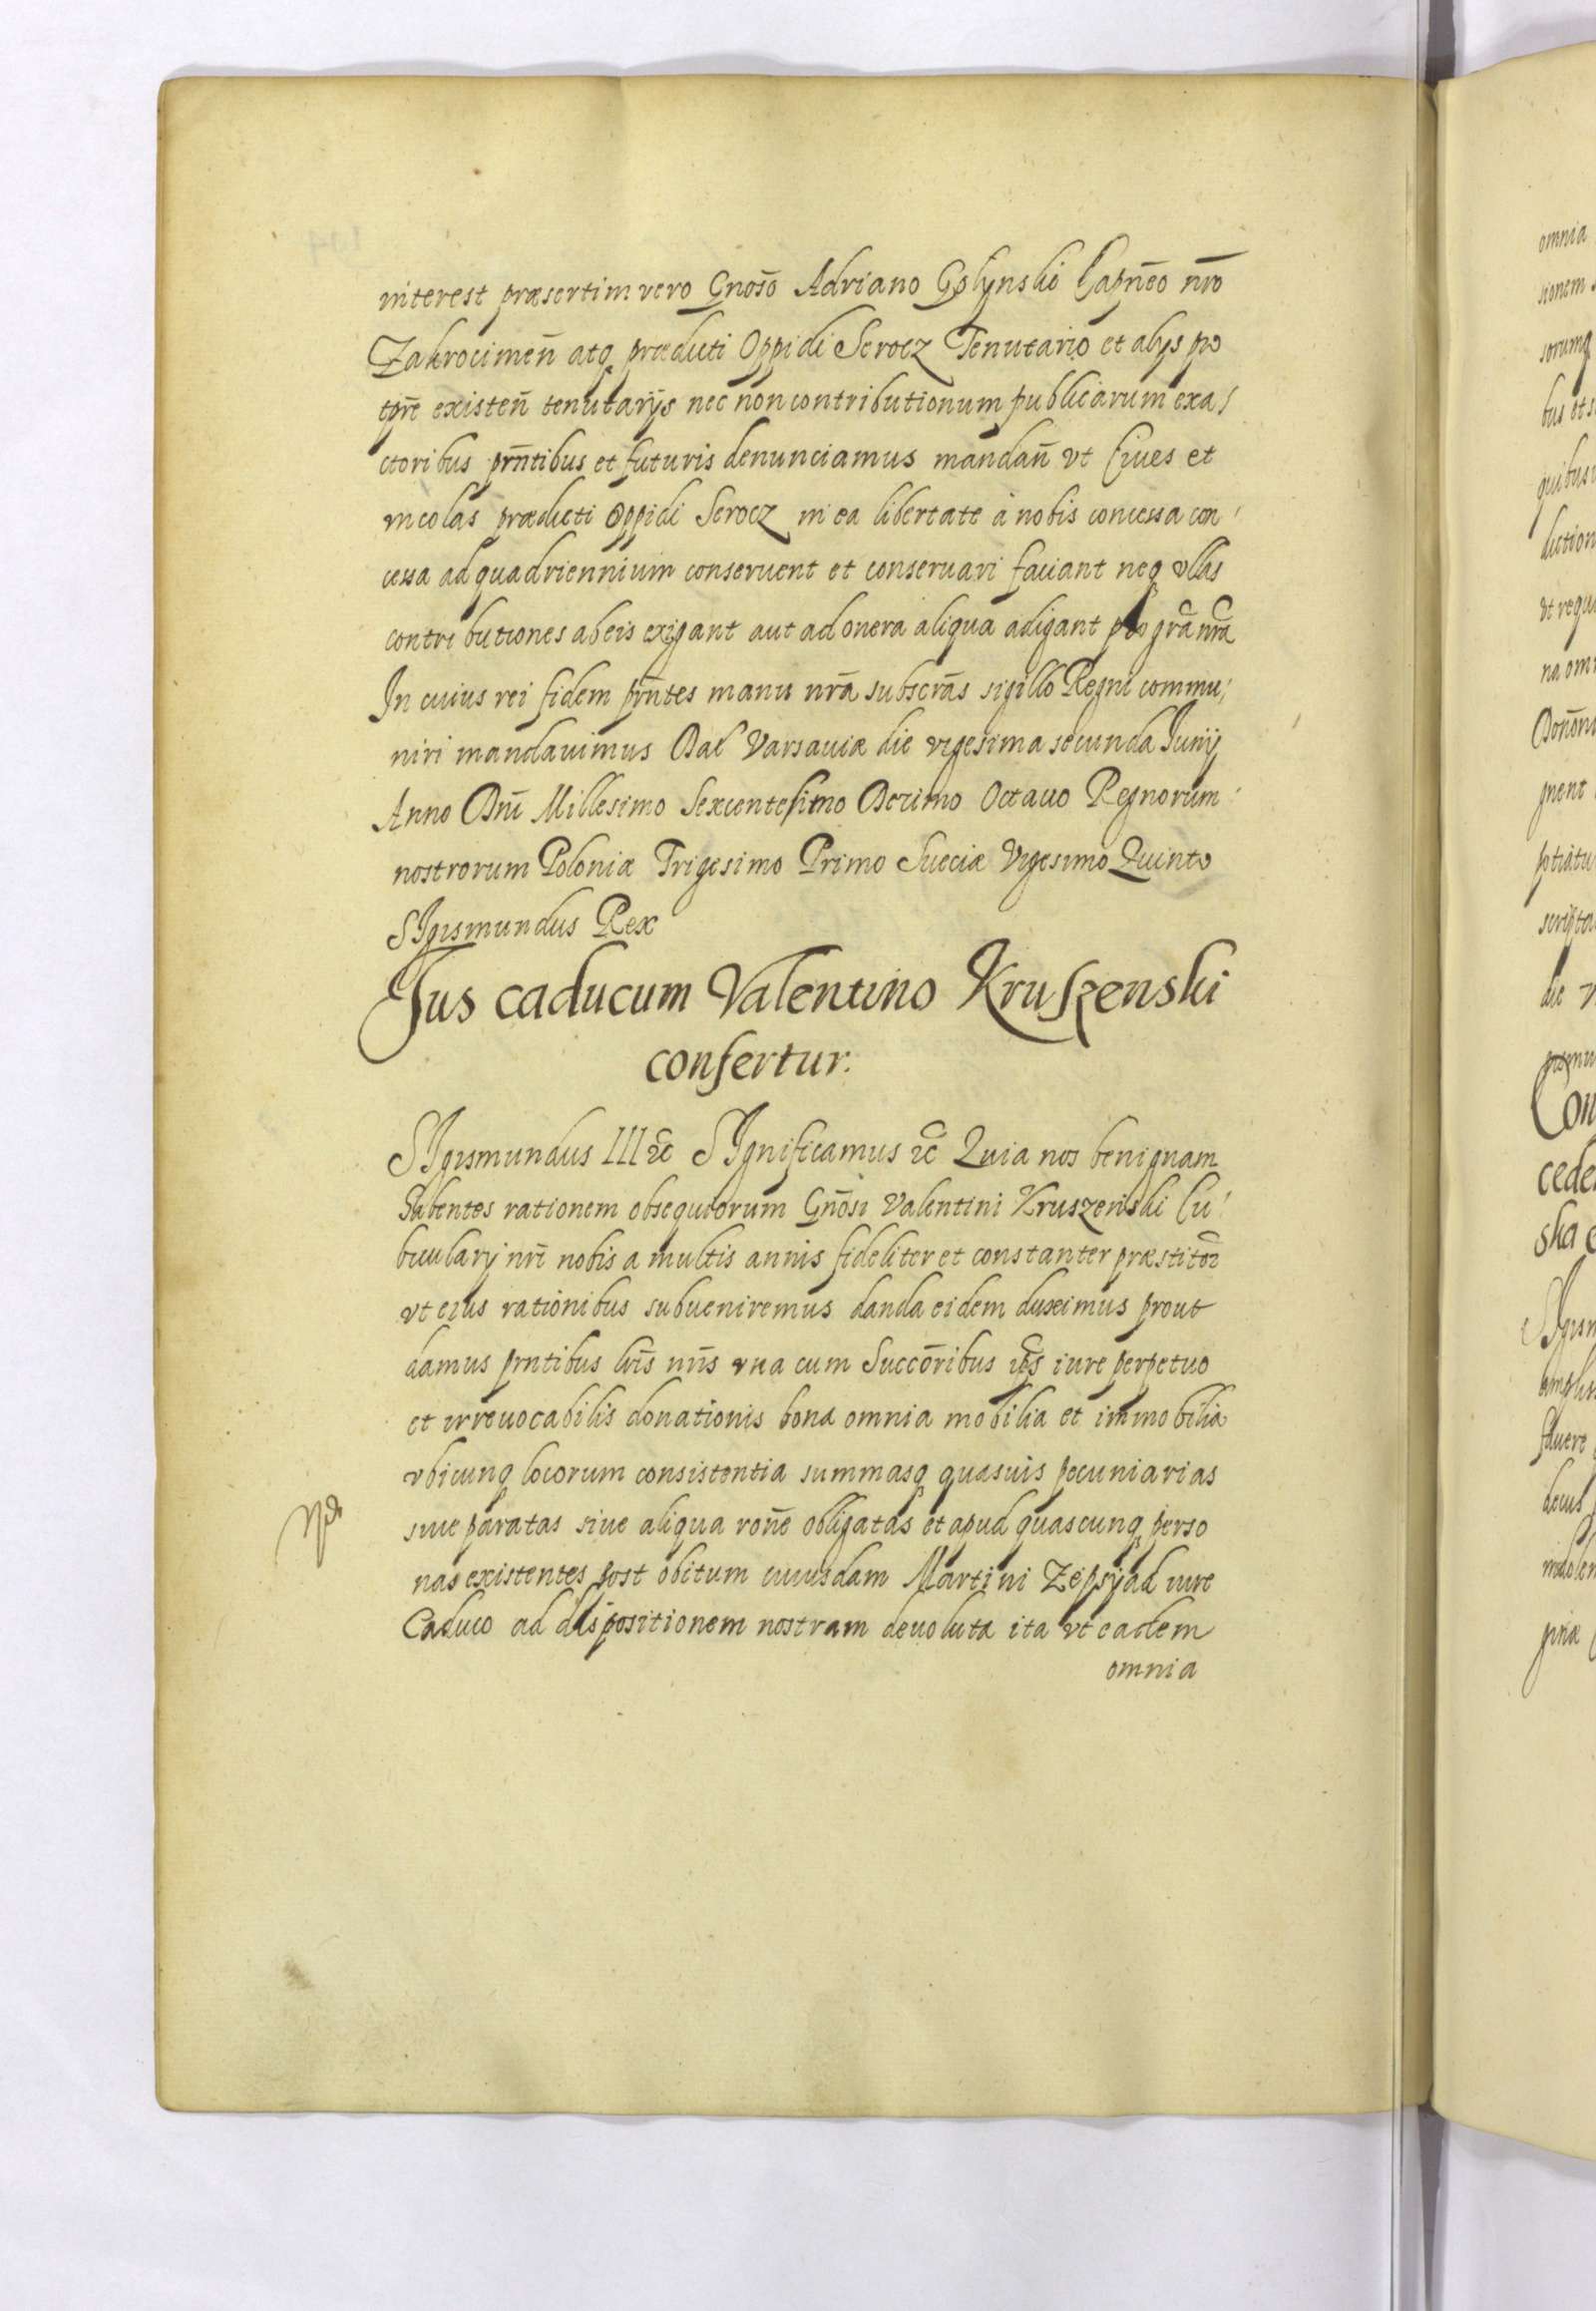 interest præsertim vero Gnosō Adriano Golynski Capnēo nrō
Zakrocimen̄ atq præducti Oppidi Serocz Tenutario et alys pro
tpr̄e existen̄ tenutarijs nec non contributionum publicarum exa/
ctoribus prn̄tibus et futuris denunciamus mandan̄ vt Ciues et
incolas prædicti Oppidi Serocz in ea libertate à nobis concessa con
cessa ad quadriennium conseruent et conseruari faciant neq vllas
contributiones ab eis exigant aut ad onera aliqua adigant pro gr̄a nr̄a
In cuius rei fidem prn̄tes manu nr̄a subscrās sigillo Regni commu:
niri mandauimus Dat Varsauiæ die vigesima secunda Junij
Anno Dnī Millesimo Sexcentesimo Decimo Octauo Regnorum
nostrorum Poloniæ Trigesimo Primo Sueciæ Vigesimo Quinto
SIgismundus Rex
Jus caducum Valentino Kruszenski
confertur.
SIgismundus III etc SIgnificamus etc Quia nos benignam
Habentes rationem obsequiorum Gnōsi Valentini Kruszenski Cu
bicularij nrī nobis a multis annis fideliter et constanter præstitor
vt eius rationibus subueniremus danda eidem duximus prout
damus prntibus lrīs nrīs vna cum Succōribus iure perpetuo
et irreuocabilis donationis bona omnia mobilia et immobilia
vbicunq locorum consistentia summasq quasuis pecuniarias
siue paratas siue aliqua ronē obligatas et apud quascunq perso
nas existentes post obitum cuiusdam Martini Zepsyad iure
Caduco ad dispositionem nostram deuoluta ita vt eadem
omnia